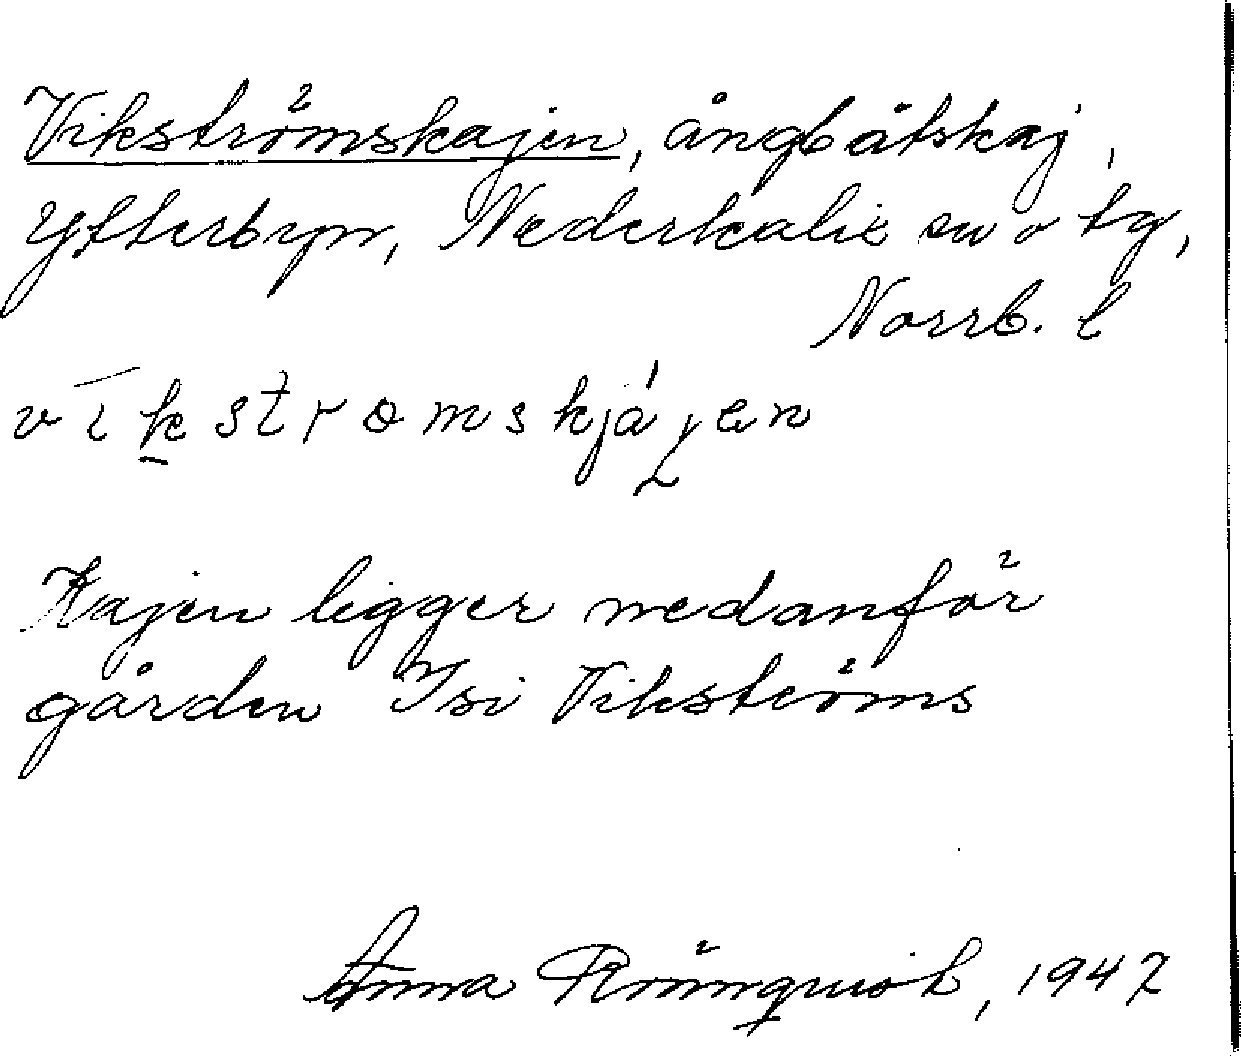 Vikströmskajen, ångbåtskaj,
Ytterbyn, Nederkalix sn o tg,
Norrb. l
Kajen ligger nedanför
gården Isi Vikströms
Anna Rönnquist, 1947